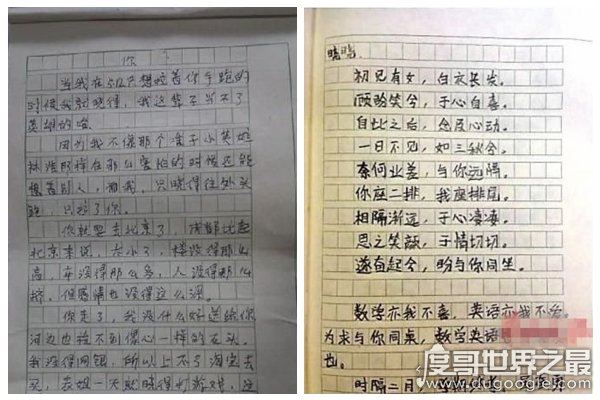 你
当我在512只想拉着你手跑的
时候我就晓得，我这辈子当不了
英雄的
因为我不像那个 小英雄
林浩那样在那么害怕的时候还能
想着别人，而我，只晓得往外头
跑，只拉了你。
你就要去北京了，成都比起
北京来说，太小了，楼没得那么
高，车没得那么多，人没得那么
挤，但感情也没得这么深。
你走了，我没什么好送给你
河边也捡不到像心一样的石头
我没得网银，所以上不了淘宝去
买，表姐一天就晓得打游戏，这
晓晓：
初见有女，白衣长发。
顾盼笑兮，于心自喜。
自此之后，念及心动。
一日不见，如三秋兮。
奈何业差，与你远隔。
你座二排，我座排尾。
相隔渐远，于心凄凄。
思之笑颜，于情切切。
遂奋起兮，盼与你同坐。
数学亦我不喜，英语亦我不爱。
为求与你同桌，数学英语
也。
时隔二月
度哥世界之最
www.dugoogle.com